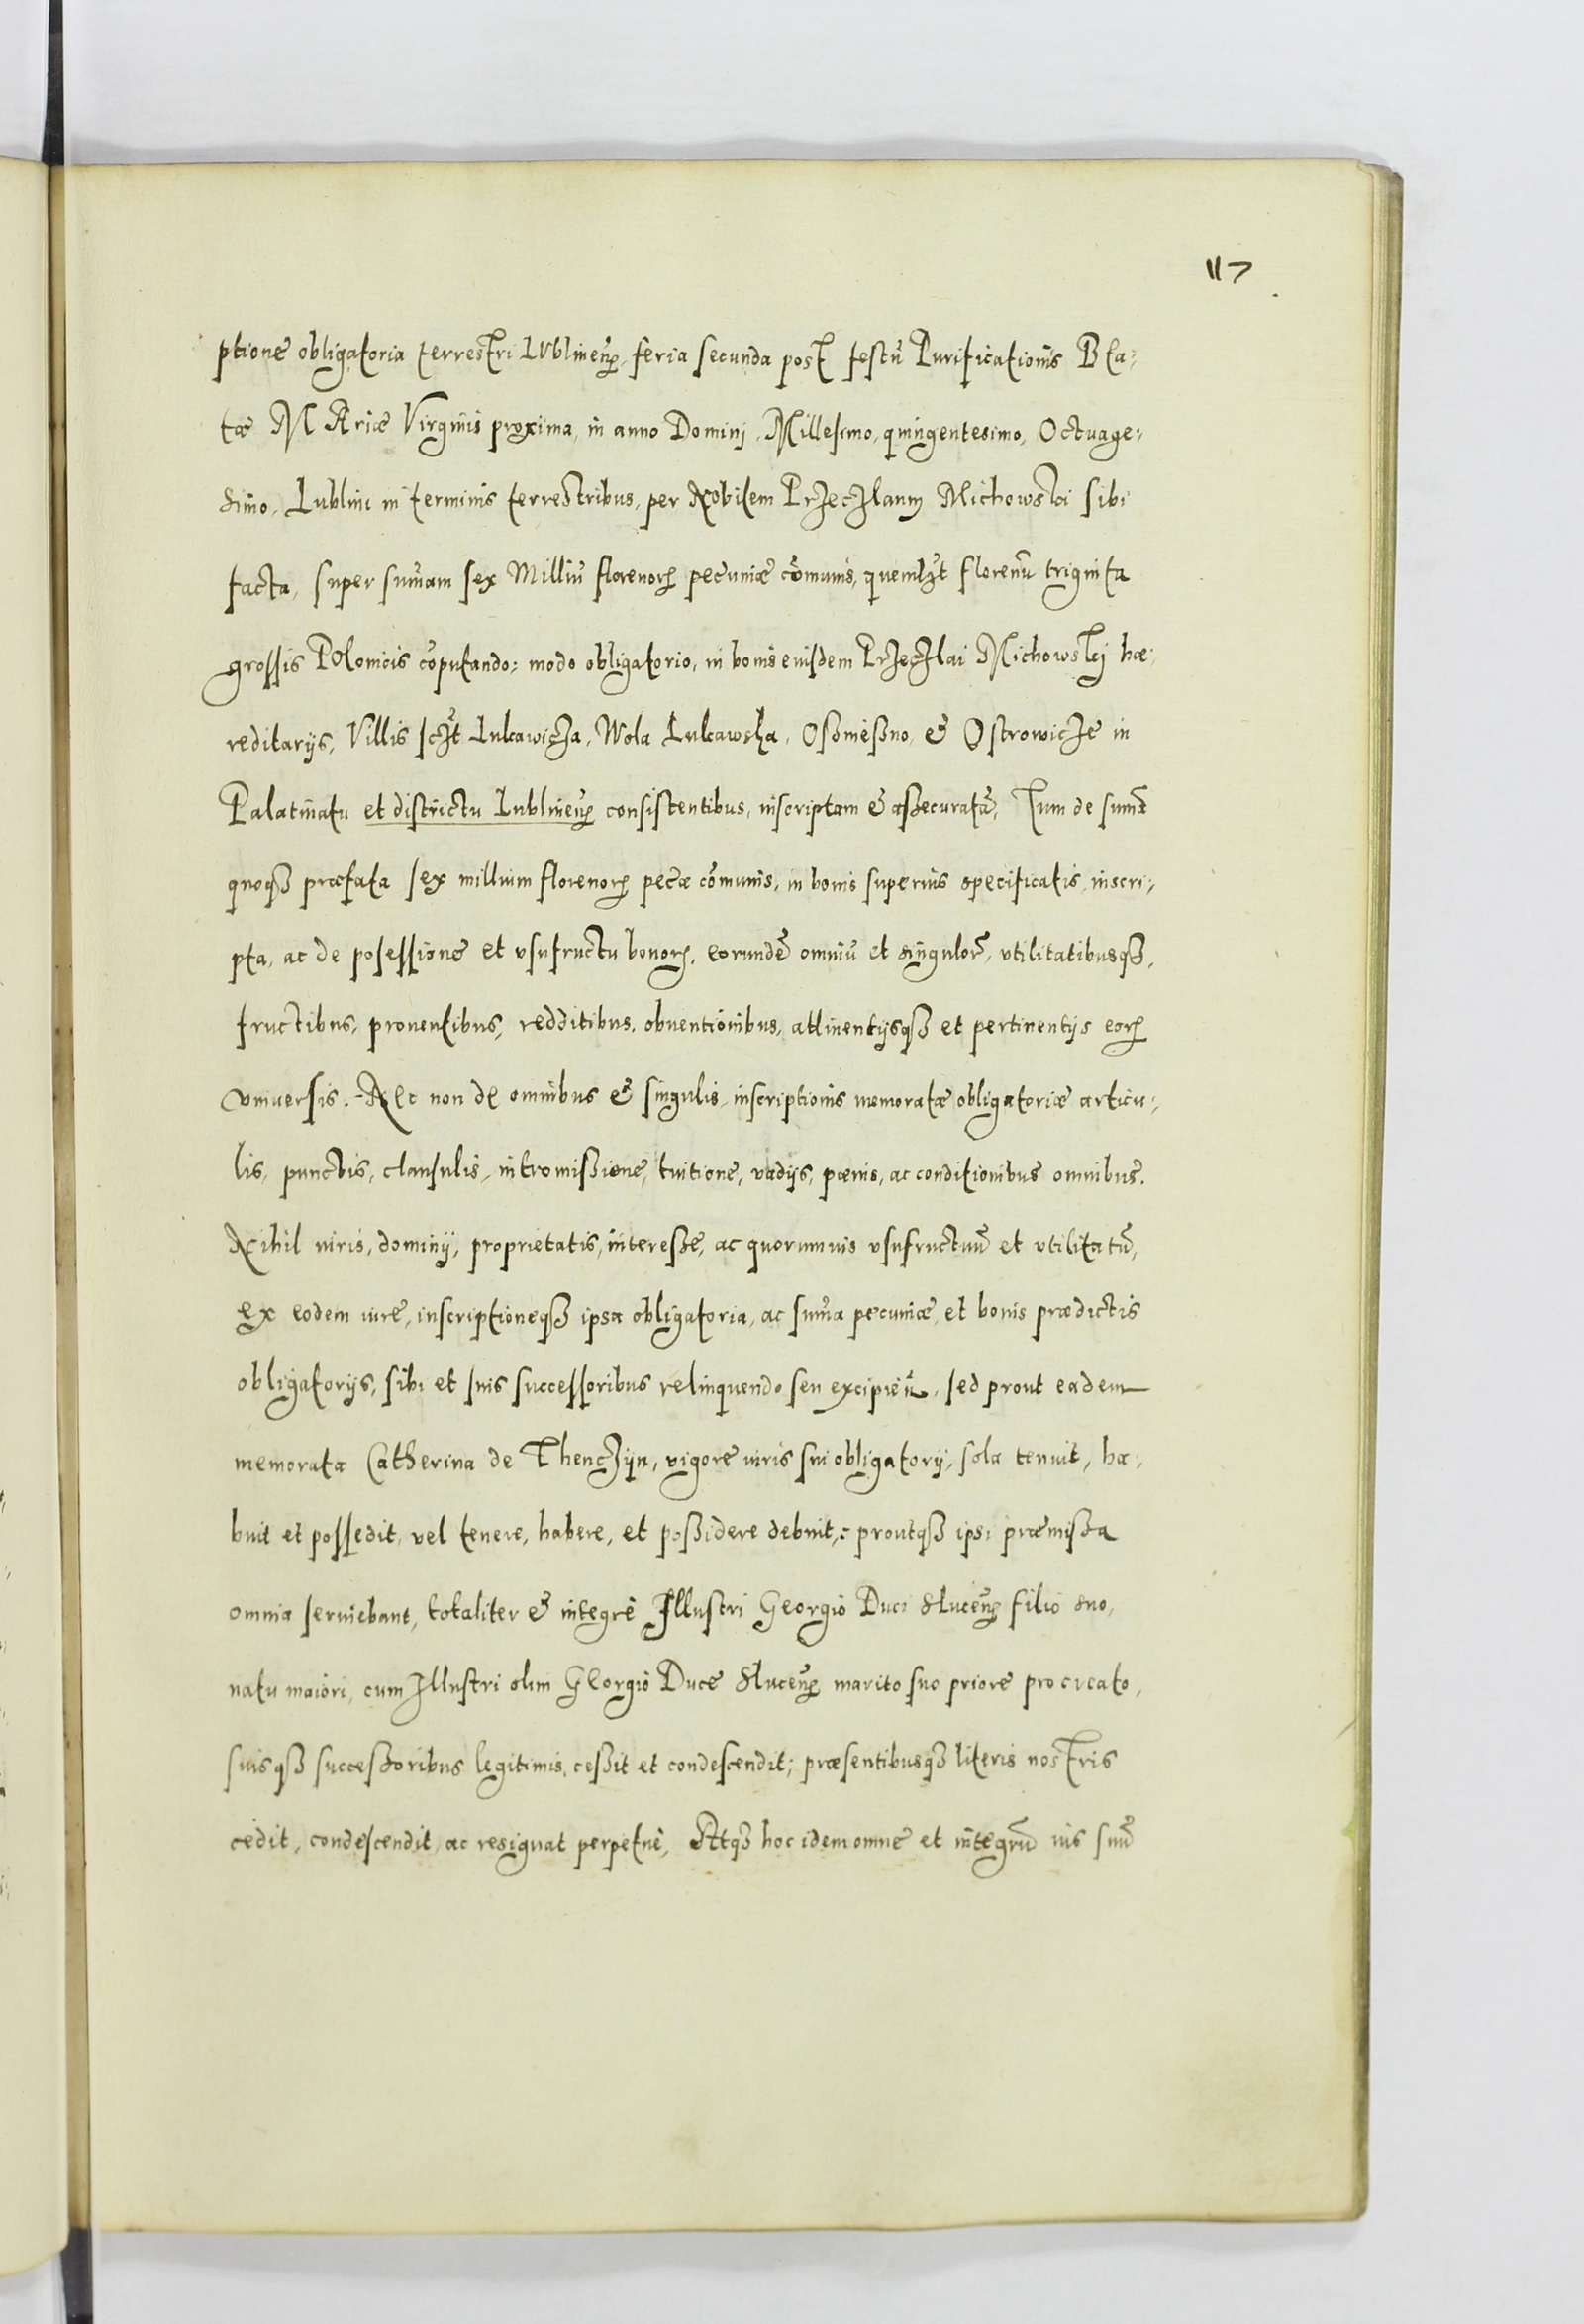 117
ptione obligatoria terrestri Lublineñ. feria secunda post festũ Purificationis Bea:
tæ MAriæ Virginis proxima, in anno Dominj Millesimo, quingentesimo, Octuage:
simo, Lublini in terminis terrestribus, per Nobilem Przeczlaum Michowski sibi
facta, super sum̃am sex Milliũ florenorꝝ pecuniæ com̃unis, quemlꝫt florenũ triginta
grossis Polonicis cõputando: modo obligatorio, in bonis eiusdem Przeczlai Michowskj hæ:
reditarijs, Villis sczt Lukawicza, Wola Lukawska, Ossmiessno, & Ostrowicze in
Palatinatu et districtu Lublineñ consistentibus, inscriptam & assecuratã, Tum de sum̃a
quoqꝫ præfata sex millium florenorꝝ pecæ com̃unis, in bonis superius specificatis, inscri:
pta, ac de posessione et vsufructu bonorꝝ, eorundẽ omniũ et singulorꝝ, vtilitatibusqꝫ,
fructibus, prouentibus, redditibus, obuentionibus, attinentijsqꝫ et pertinentijs eorꝝ
vniuersis. Nec non de omnibus & singulis, inscriptionis memoratæ obligatoriæ articu:
lis, punctis, clausulis, intromissione, tuitione, vadijs, pœnis, ac conditionibus omnibus.
Nihil iuris, dominij, proprietatis, interesse, ac quorumuis vsufructuũ et vtilitatũ,
ex eodem iure, inscriptioneqꝫ ipsa obligatoria, ac sum̃a pecuniæ, et bonis prædictis
obligatorijs, sibi et suis successoribus relinquendo seu excipieñ, sed prout eadem
memorata Catherina de Thenczijn, vigore iuris sui obligatorij, sola tenuit, ha:
buit et possedit, vel tenere, habere, et possidere debuit, proutqꝫ ipsi præmissa
omnia seruiebant, totaliter & integrè Illustri Georgio Duci Sluceñ filio suo,
natu maiori, cum Illustri olim Georgio Duce Sluceñ marito suo priore procreato,
suisqꝫ successoribus legitimis, cessit et condescendit; præsentibusqꝫ literis nostris
cedit, condescendit, ac resignat perpetuè, Atqꝫ hoc idem omne et integrũ ius suũ